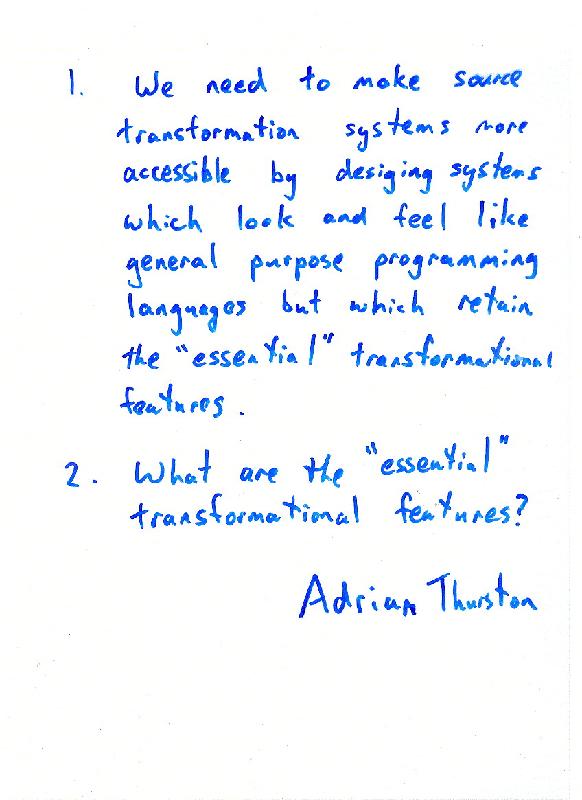 1. We need to make source
transformation systems more
accessible by desiging systems
which look and feel like
general purpose programming
languages but which retain
the "essential" transformational
features.
2. What are the "essential"
transformational features?
Adrian Thurston